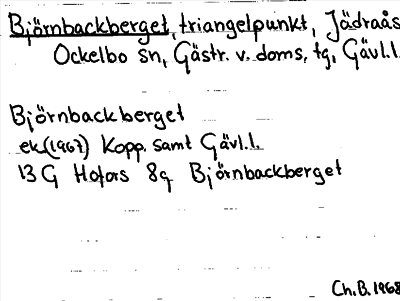 Björnbackberget, triangelpunkt, Jädraås
Ockelbo sn, Gästr. v. doms, tg, Gävl.l.
Björnbackberget
ek(1967) Kopp. samt Gävl.l.
13 G Hofors 8g Björnbackberget
Ch.B. 1968